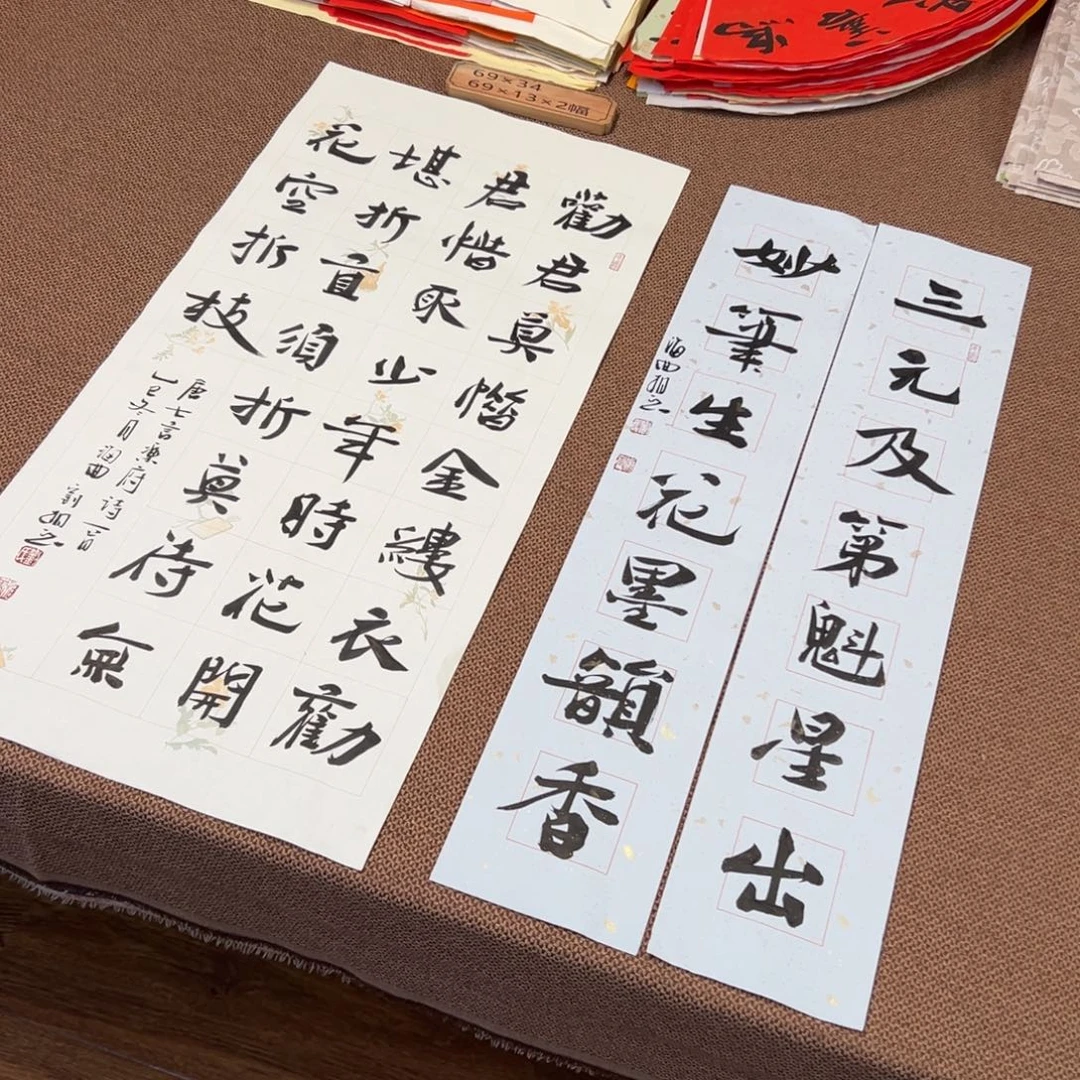 69×34
69×13×2幅
三元及第魁星出
妙筆生花墨韻香
勸君莫惜金縷衣勸
君惜取少年時花開
堪折直須折莫待無
花空折枝
唐七言樂府詩一首
乙巳冬月